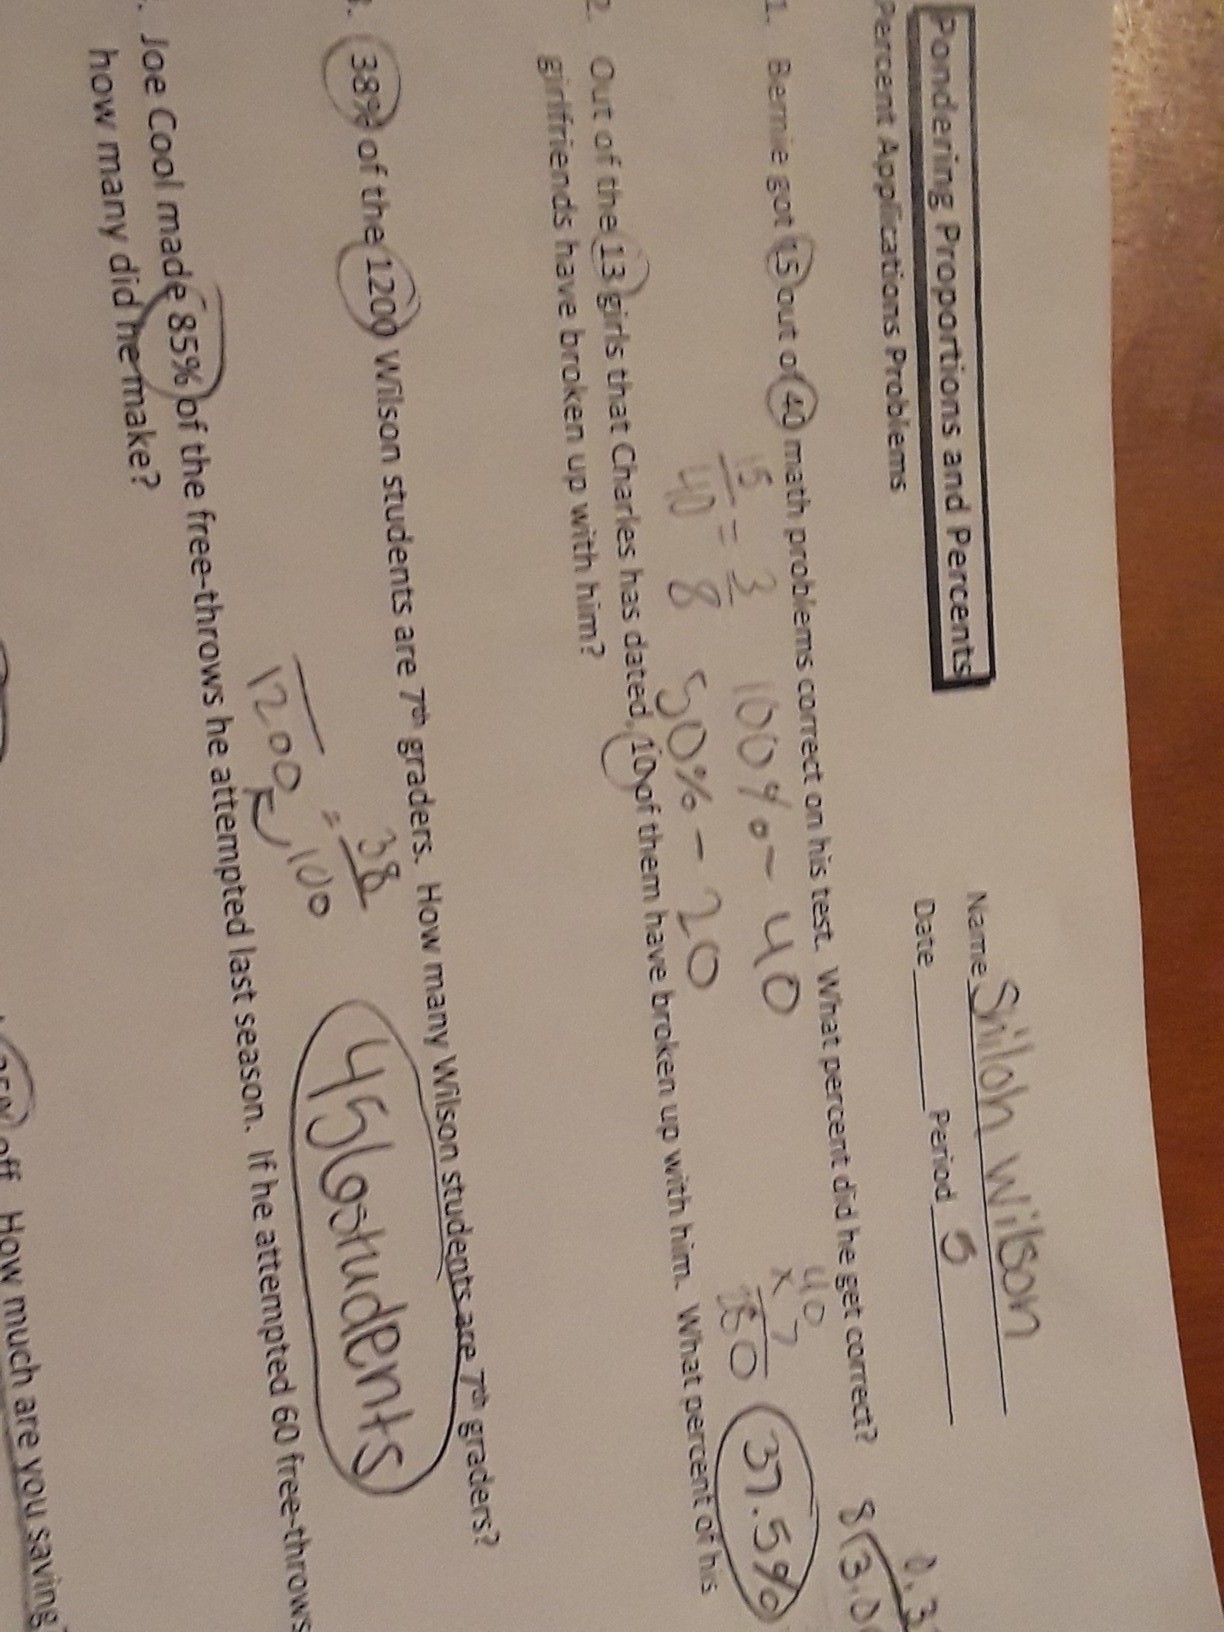 Pondering Proportions and Percents
Name Shiloh Wilson
Percent Applications Problems
Date Period 5
1. Bernie got 15 out of 40 math problems correct on his test. What percent did he get correct?
15/40 = 3/8
100% - 40
50% - 20
40
x 7
280
37.5%
0.3
8 3.0
2. Out of the 13 girls that Charles has dated, 10 of them have broken up with him. What percent of his
girlfriends have broken up with him?
38% of the 1200 Wilson students are 7th graders. How many Wilson students are 7th graders?
1200 = 38/100
456 students
Joe Cool made 85% of the free-throws he attempted last season. If he attempted 60 free-throws
how many did he make?
off How much are you saving